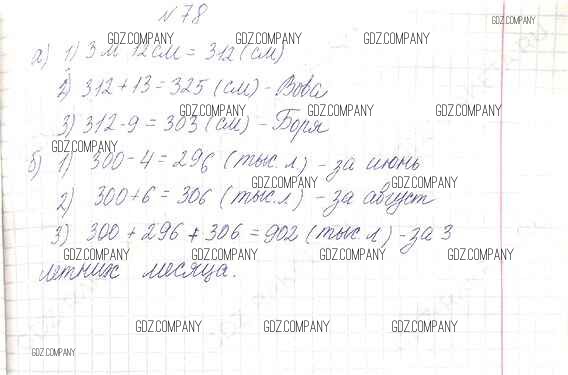 №78
GDZ.COMPANY
GDZ.COMPANY GDZ.COMPANY GDZ.COMPANY
а) 1) 3 м 12 см = 312 (см)
2) 312 + 13 = 325 (см) - Вова
GDZ.COMPANY GDZ.COMPANY GDZ.COMPANY
3) 312 - 9 = 303 (см) - Боря
GDZ.COMPANY
б) 1) 300 - 4 = 296 (тыс. л) - за июнь
GDZ.COMPANY GDZ.COMPANY
2) 300 + 6 = 306 (тыс. л) - за август
3) 300 + 296 + 306 = 902 (тыс. л) - за 3
GDZ.COMPANY GDZ.COMPANY GDZ.COMPANY
летних месяца.
GDZ.COMPANY GDZ.COMPANY GDZ.COMPANY
GDZ.COMPANY